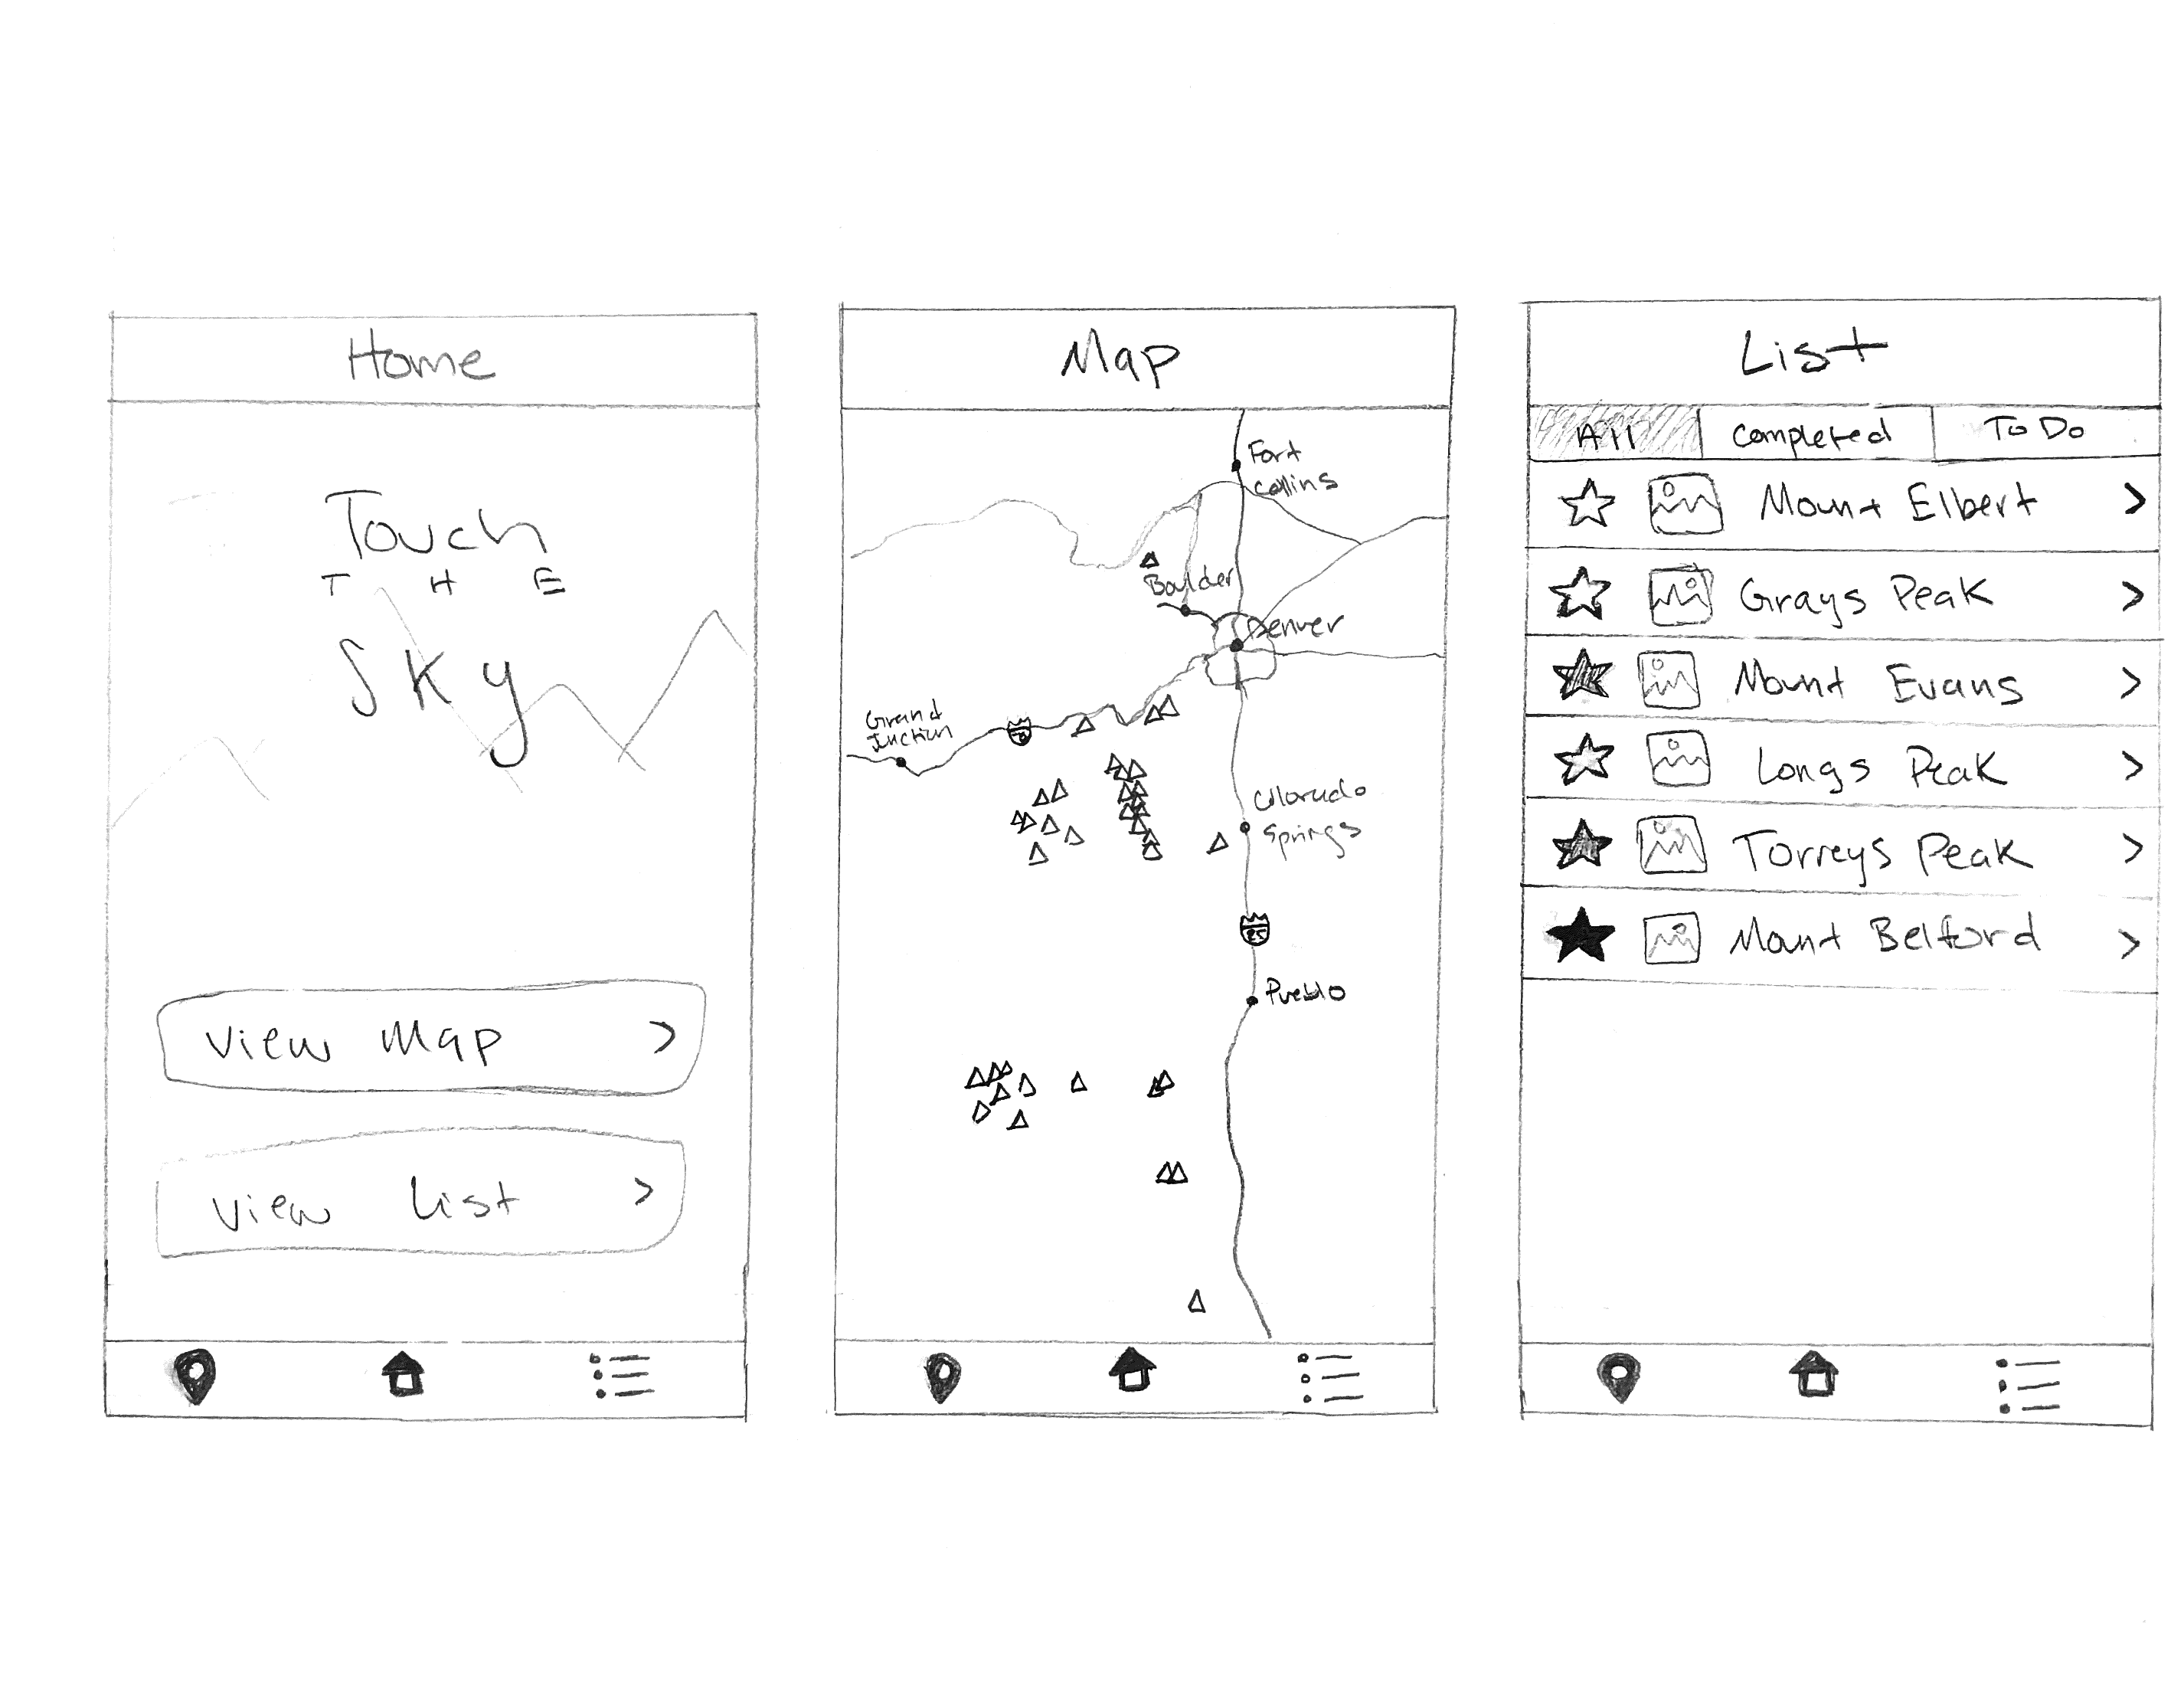 Home
Touch
THE
Sky
View Map >
View List >
Map
Fort
Collins
Boulder
Denver
Grand
Junction
70
Colorado
Springs
25
Pueblo
List
All
Completed
To Do
Mount Elbert >
Grays Peak >
Mount Evans >
Longs Peak >
Torreys Peak >
Mount Belford >